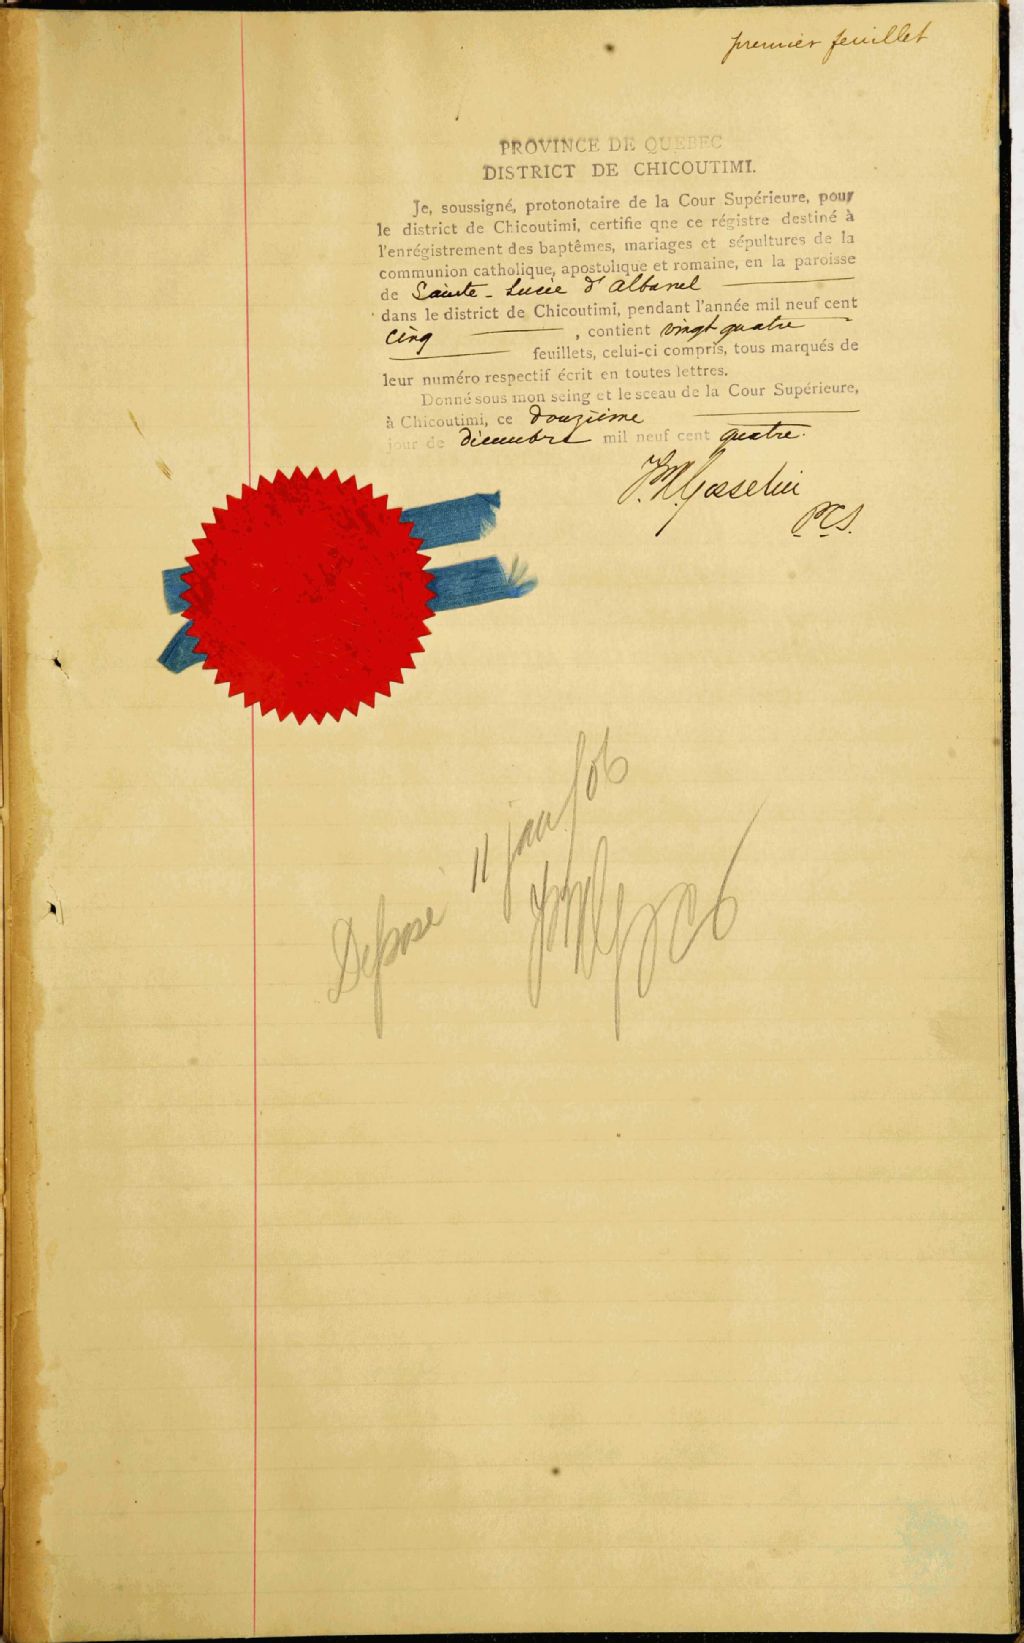 premier feuillet
PROVINCE DE QUEBEC
DISTRICT DE CHICOUTIMI.
Je, soussigné, protonotaire de la Cour Supérieure, pour
le district de Chicoutimi, certifie qne ce régistre destiné à
l'enrégistrement des baptêmes, mariages et sépultures de la
communion catholique, apostolique et romaine, en la paroisse
de Sainte-Lucie d'Albanel
dans le district de Chicoutimi, pendant l'année mil neuf cent
cinq, contient vingt quatre
feuillets, celui-ci compris, tous marqués de
leur numéro respectif écrit en toutes lettres.
Donné sous mon seing et le sceau de la Cour Supérieure,
à Chicoutimi, ce douzième
jour de décembre mil neuf cent quatre.
Gosselin
P.C.S.
Déposé 11 janv 06